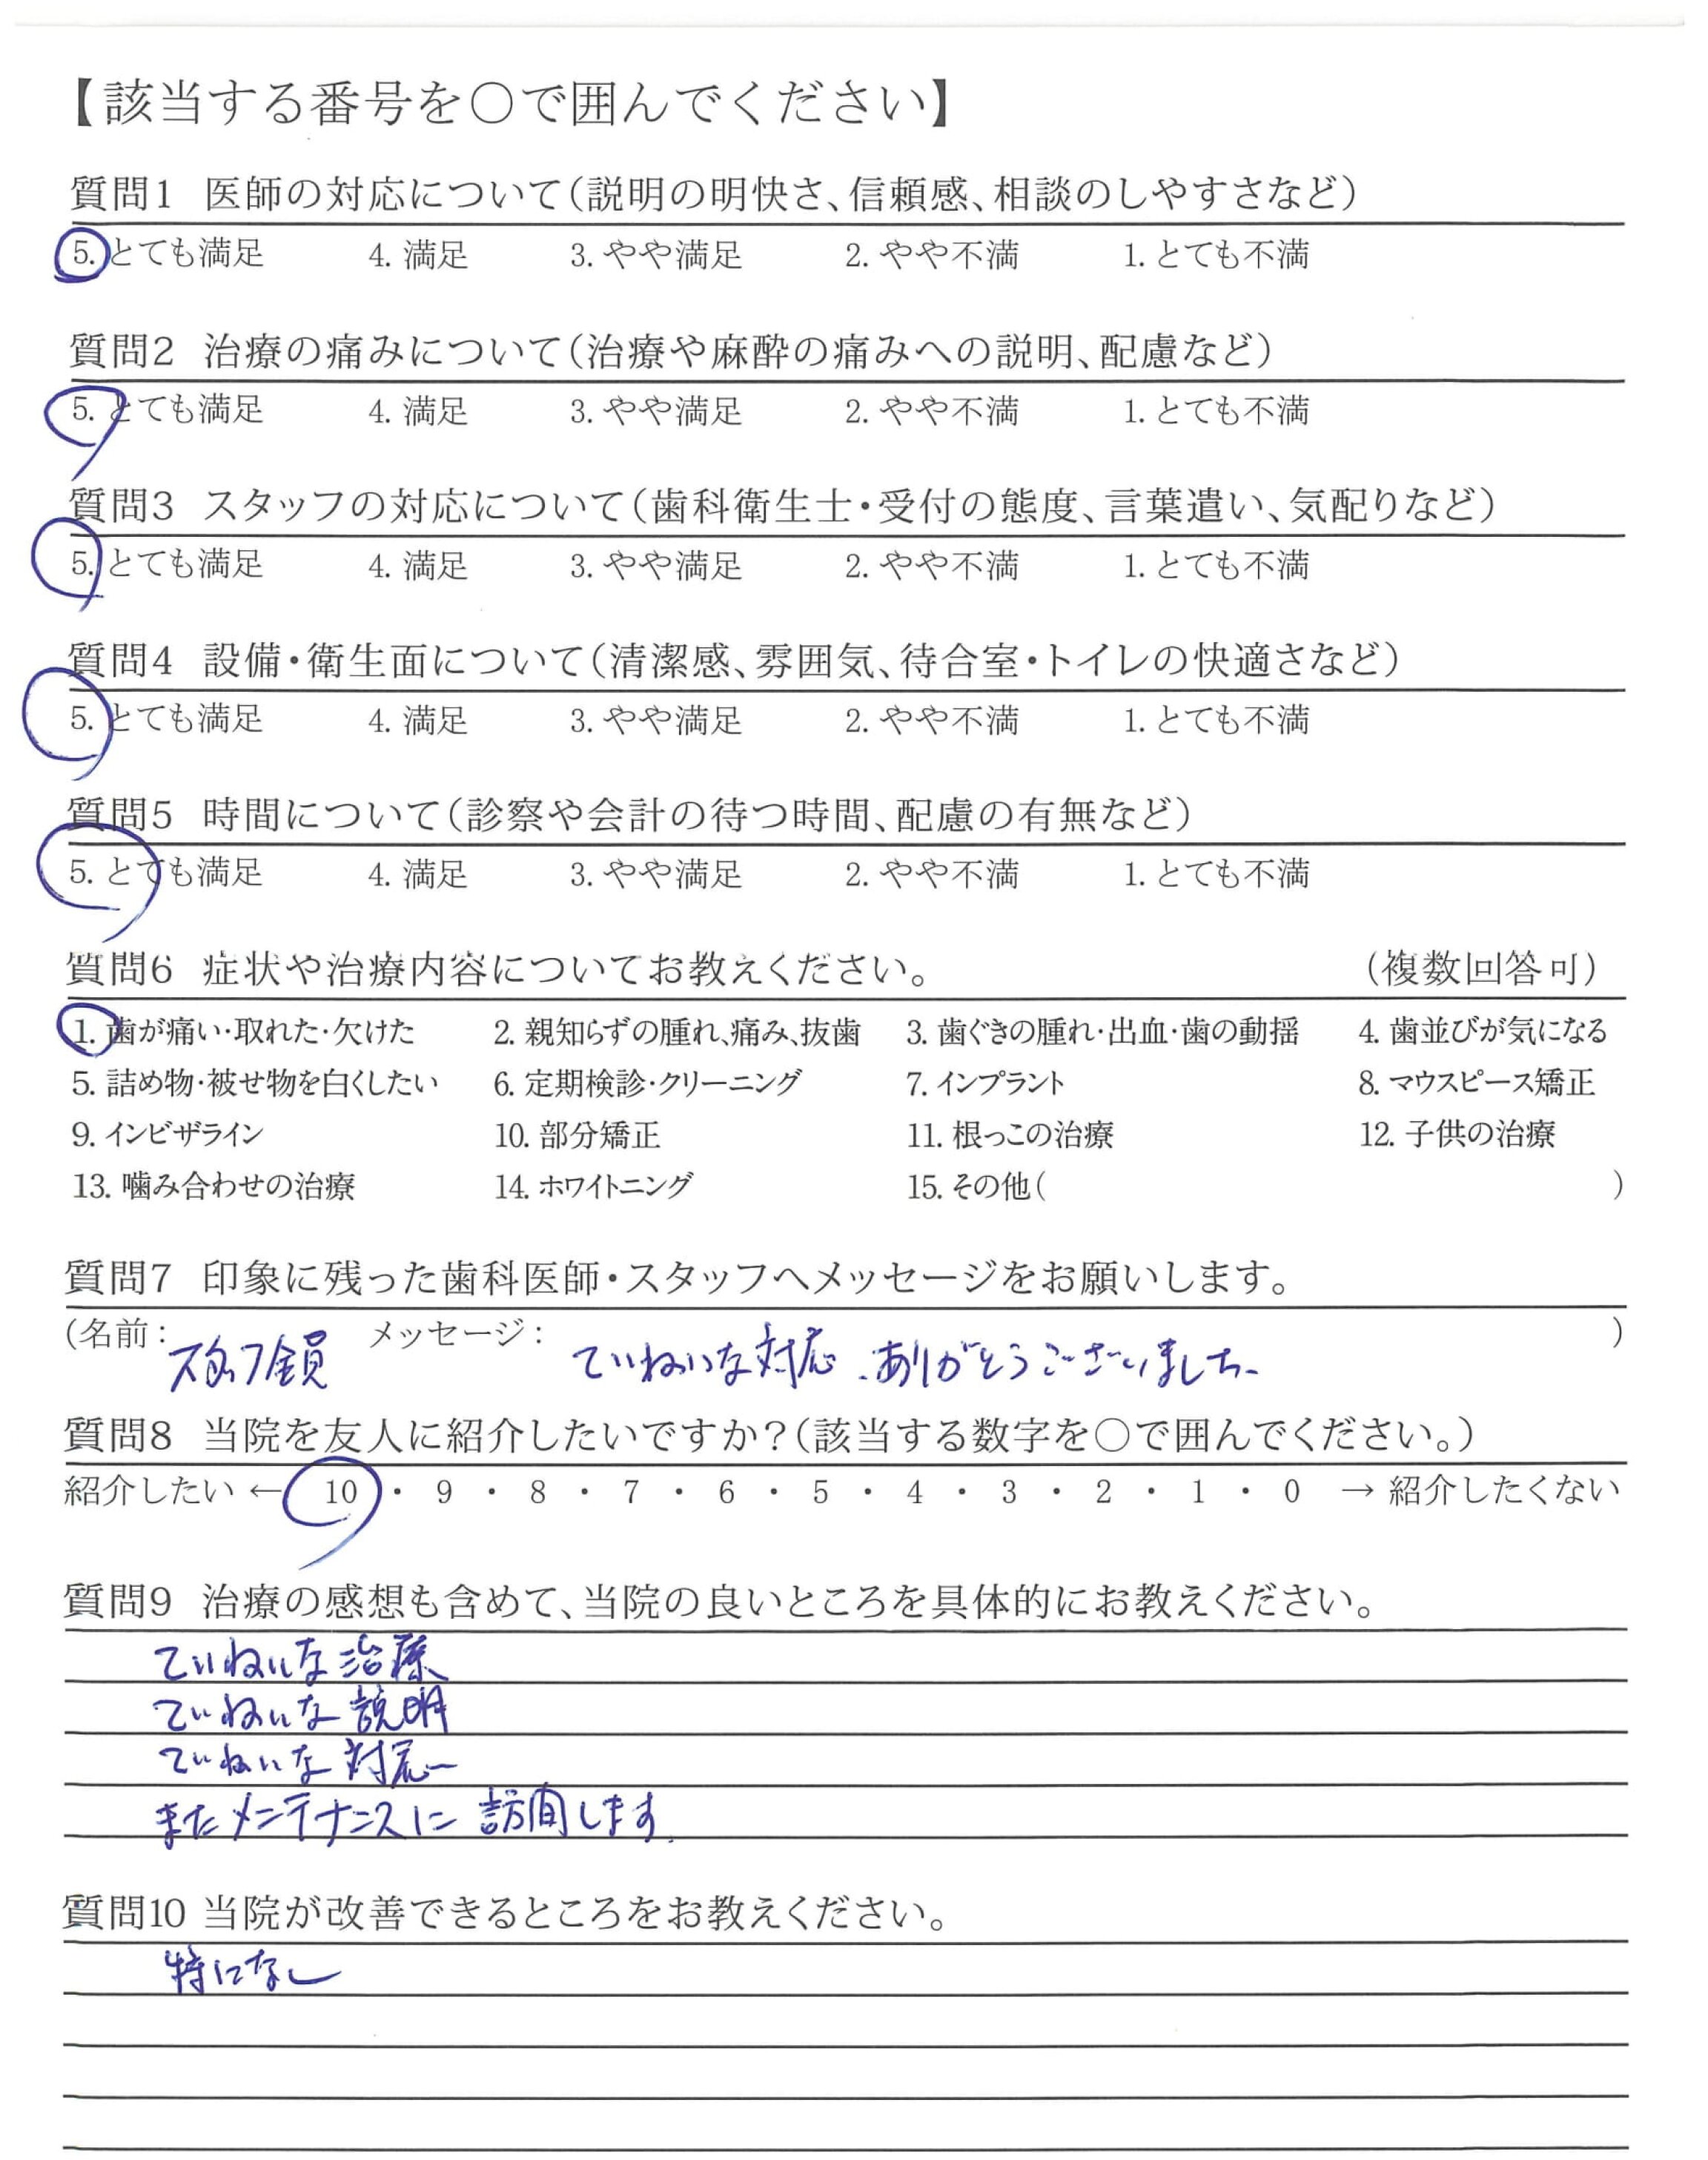 【該当する番号を〇で囲んでください】
質問1 医師の対応について(説明の明快さ、信頼感、相談のしやすさなど)
5. とても満足 4. 満足 3. やや満足 2. やや不満 1. とても不満
質問2 治療の痛みについて(治療や麻酔の痛みへの説明、配慮など)
5. とても満足 4. 満足 3. やや満足 2. やや不満 1. とても不満
質問3 スタッフの対応について(歯科衛生士・受付の態度、言葉遣い、気配りなど)
5. とても満足 4. 満足 3. やや満足 2. やや不満 1. とても不満
質問4 設備・衛生面について(清潔感、雰囲気、待合室・トイレの快適さなど)
5. とても満足 4. 満足 3. やや満足 2. やや不満 1. とても不満
質問5 時間について(診察や会計の待つ時間、配慮の有無など)
5. とても満足 4. 満足 3. やや満足 2. やや不満 1. とても不満
質問6 症状や治療内容についてお教えください。 (複数回答可)
1. 歯が痛い・取れた・欠けた 2. 親知らずの腫れ、痛み、抜歯 3. 歯ぐきの腫れ・出血・歯の動揺 4. 歯並びが気になる
5. 詰め物・被せ物を白くしたい 6. 定期検診・クリーニング 7. インプラント 8. マウスピース矯正
9. インビザライン 10. 部分矯正 11. 根っこの治療 12. 子供の治療
13. 噛み合わせの治療 14. ホワイトニング 15. その他( )
質問7 印象に残った歯科医師・スタッフへメッセージをお願いします。
(名前: スタッフ全員 メッセージ: ていねいな対応、ありがとうございました )
質問8 当院を友人に紹介したいですか?(該当する数字を〇で囲んでください。)
紹介したい ← 10 ・ 9 ・ 8 ・ 7 ・ 6 ・ 5 ・ 4 ・ 3 ・ 2 ・ 1 ・ 0 → 紹介したくない
質問9 治療の感想も含めて、当院の良いところを具体的にお教えください。
ていねいな治療
ていねいな説明
ていねいな対応
またメンテナンスに訪問します.
質問10 当院が改善できるところをお教えください。
特になし